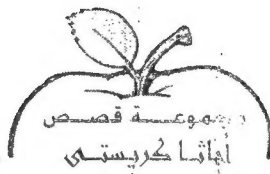 مجموعة قصص
أجاثا كريستى